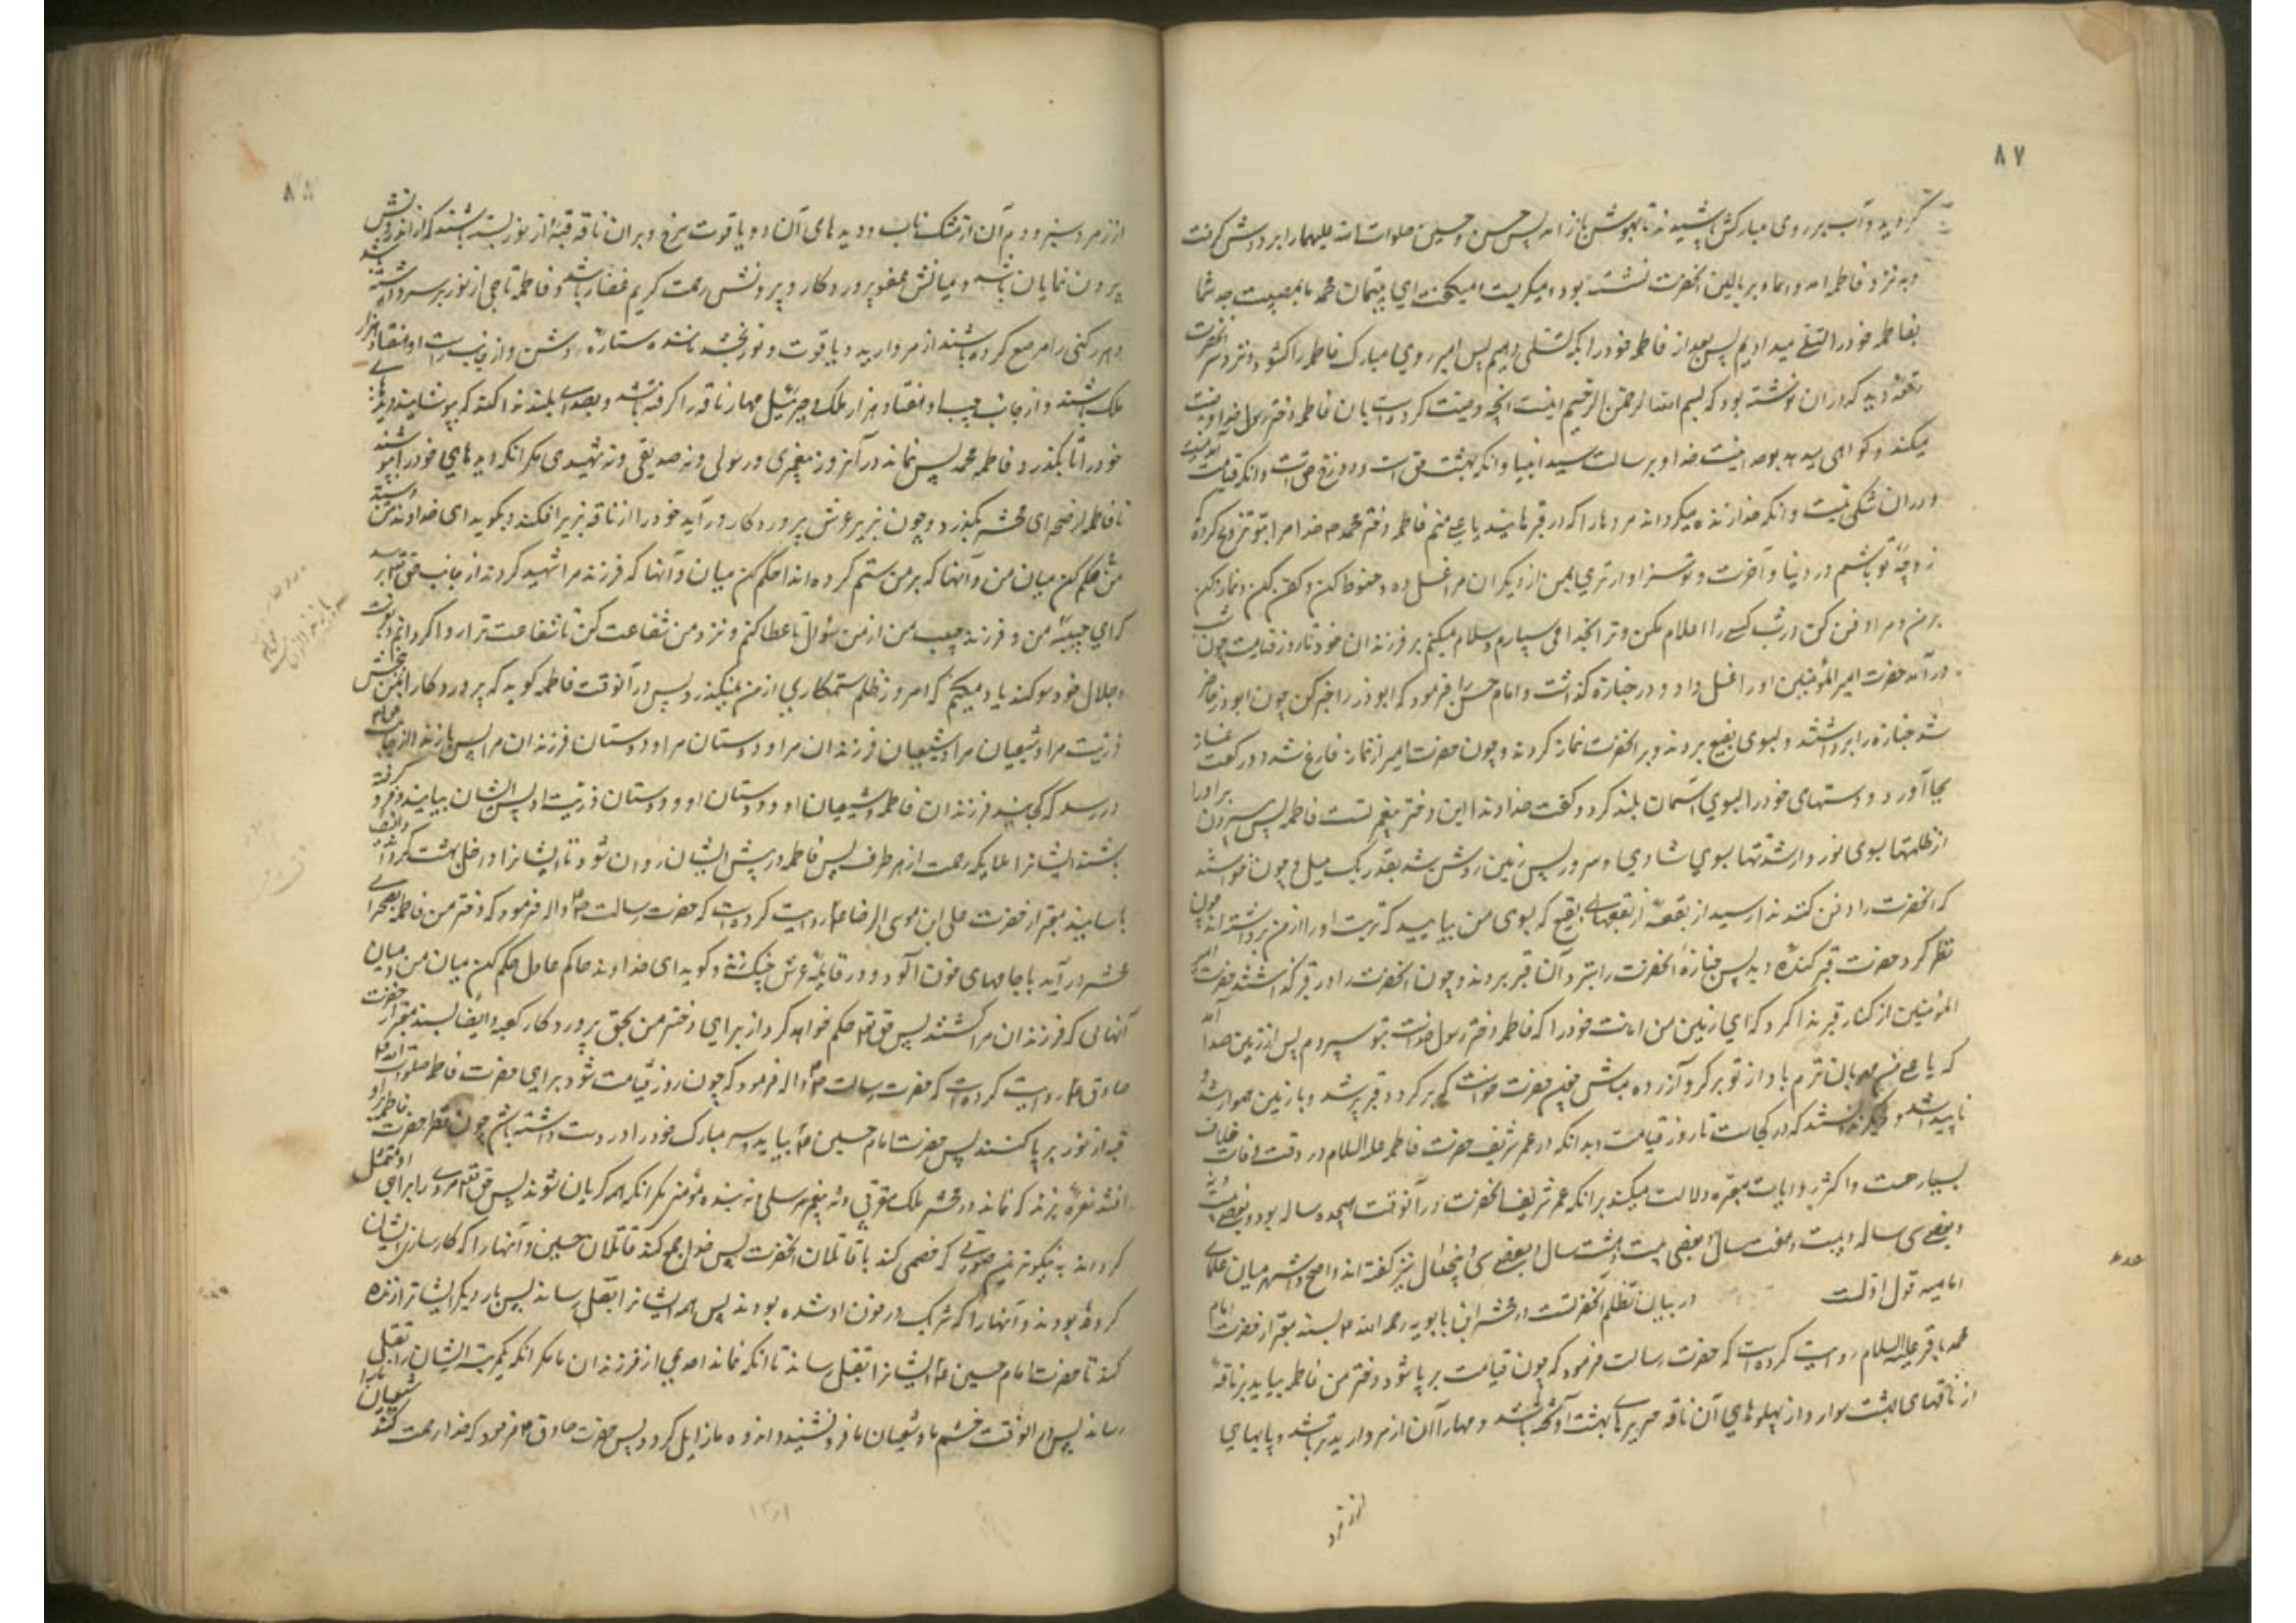 ۸۷
گردید و آب بر روی مبارکش پاشیدند تا بهوش باز آمد پس حسن و حسین صلوات الله علیهما را بر دوش گرفت
و به نزد فاطمه آمد و اسماء بر بالین آنحضرت نشسته بود و میگریست و میگفت ای یتیمان محمد ما بمصیبت جد شما
بفاطمه خود را تسلی میدادیم پس بعد از فاطمه خود را بکه تسلی دهیم پس امیر روی مبارک فاطمه را گشود و نزد سر آنحضرت
رقعه دید که در آن نوشته بود که بسم الله الرحمن الرحیم اینست آنچه وصیت کرده است بآن فاطمه دختر رسول خدا وصیت
میکند و گواهی میدهد بوحدانیت خدا و برسالت سید انبیا و آنکه بهشت حق است و دوزخ حق است و آنکه قیامت آمدنیست
و در آن شکی نیست و آنکه خدا زنده میگرداند مردها را که در قبرهایند یا علی منم فاطمه دختر محمد خدا مرا بتو تزویج کرده
زوجه تو باشم در دنیا و آخرت و تو سزاوارتری بمن از دیگران مرا غسل ده و حنوط کن و کفن کن و نماز کن
بر من و مرا دفن کن در شب کسی را اعلام مکن و ترا بخدا می سپارم و سلام میکنم بر فرزندان خود تا روز قیامت چون شب
درآمد حضرت امیرالمؤمنین او را غسل داد و در جنازه گذاشت و امام حسن را فرمود که ابوذر را خبر کن چون ابوذر حاضر
شد جنازه را برداشتند و بسوی بقیع بردند و بر آنحضرت نماز کردند و چون حضرت امیر از نماز فارغ شد دو رکعت نماز
بجا آورد و دستهای خود را بسوی آسمان بلند کرد و گفت خداوندا این دختر پیغمبر تست فاطمه پس بیرون بر او را
از ظلمتها بسوی نور و از شدتها بسوی شادی و سرور پس زمین روشن شد بقدر یک میل و چون خواستند
که آنحضرت را دفن کنند ندا رسید از بقعه از بقعهای بقیع که بسوی من بیایید که تربت او را از من برداشته‌اند چون
نظر کرد حضرت قبر کنده دید پس جنازه آنحضرت را بنزد آن قبر بردند و چون آنحضرت را در قبر گذاشتند حضرت امیر
المؤمنین از کنار قبر ندا کرد که ای زمین من امانت خود را که فاطمه دختر رسول خداست بتو سپردم پس از زمین صدا آمد
که یا علی من مهربان ترم باو از تو برگرد و آزرده مباش چون حضرت خواست که برگردد قبر پر شد و با زمین هموار شد و
ناپیدا شد و دیگر ندانستند که در کجاست تا روز قیامت و بدانکه در عمر شریف حضرت فاطمه علیها السلام در وقت وفات خلاف
بسیار هست و اکثر روایات معتبره دلالت میکند بر آنکه عمر شریف آنحضرت در آنوقت هیجده ساله بود و بعضی بیست و نه
و بعضی سی ساله و بیست و هفت سال و بعضی بیست و هشت سال و بعضی سی و پنجسال نیز گفته‌اند و اصح و اشهر میان علمای
امامیه قول اول است در بیان تظلم آنحضرتست در محشر ابن بابویه رحمه الله بسند معتبر از حضرت امام
محمد باقر علیه السلام روایت کرده است که حضرت رسالت فرمود که چون قیامت بر پا شود دختر من فاطمه بیاید بر ناقه
از ناقهای بهشت سوار و از پهلوهای آن ناقه حریرهای بهشت آویخته باشد و مهار آن از مروارید تر باشد و پایهای
از زمرد
۸۸
از زمرد سبز و دم آن از مشک ناب و دیدهای آن دو یاقوت سرخ و بر آن ناقه قبه از نور بسته باشند که از اندرونش
بیرون نمایان باشد و میانش عفو پروردگار و بیرونش رحمت کریم غفار باشد و فاطمه تاجی از نور بر سر داشته باشد
و هر رکنی را مرصع کرده باشند از مروارید و یاقوت و نور بخشد مانند ستاره روشن و از جانب راست او هفتاد هزار
ملک باشند و از جانب چپ او هفتاد هزار ملک و جبرئیل مهار ناقه را گرفته باشد و بصدای بلند ندا کند که بپوشانید دیدهای
خود را تا بگذرد فاطمه محمد پس نماند در آنروز پیغمبری و رسولی و نه صدیقی و نه شهیدی مگر آنکه دیدهای خود را بپوشند
تا فاطمه از صحرای محشر بگذرد و چون بزیر عرش پروردگار درآید خود را از ناقه بزیر افکند و بگوید ای خداوند من و سید
من حکم کن میان من و آنها که بر من ستم کرده‌اند حکم کن میان من و آنها که فرزند مرا شهید کردند از جانب حق تعالی ندا رسد
که ای حبیبه من و فرزند حبیب من از من سؤال تا عطا کنم و نزد من شفاعت کن تا شفاعت ترا روا گردانم و بعزت
و جلال خود سوگند یاد میکنم که امروز ظلم ستمکاری از من نمیگذرد پس در آنوقت فاطمه گوید که پروردگارا بمن بخش
ذریت مرا و شیعیان مرا و شیعیان فرزندان مرا و دوستان مرا و دوستان فرزندان مرا پس باز ندا از جانب حق تعالی
در رسد که کجایند فرزندان فاطمه و شیعیان او و دوستان او و دوستان ذریت او پس ایشان بیایند و فرو گرفته
باشند ایشانرا ملایکه رحمت از هر طرف پس فاطمه در پیش ایشان روان شود تا ایشانرا داخل بهشت گرداند و ایضا
باسانید معتبر از حضرت علی ابن موسی الرضا روایت کرده است که حضرت رسالت صلی الله علیه و اله فرمود که دختر من فاطمه بصحرای
محشر درآید با جامهای خون آلود و در قایمه عرش چنگ زند و گوید ای خداوند حاکم عادل حکم کن میان من و میان
آنهائی که فرزندان مرا کشتند پس حق تعالی حکم خواهد کرد از برای دختر من بحق پروردگار کعبه و ایضا بسند معتبر از حضرت
صادق روایت کرده است که حضرت رسالت و اله فرمود که چون روز قیامت شود برای حضرت فاطمه صلوات الله علیها
قبه از نور بر پا کنند پس حضرت امام حسین بیاید و سر مبارک خود را در دست داشته باشد چون نظر حضرت فاطمه بر او
افتد نعره بزند که نماند در محشر ملک مقربی و نه پیغمبر مرسلی و نه بنده مؤمنی مگر آنکه همه گریان شوند پس حق تعالی مردی را برای او متمثل
گرداند به نیکوترین صورتی که خصمی کند با قاتلان آنحضرت پس خدا جمع کند قاتلان حسین و آنها را که کارسازی ایشان
کرده بودند و آنها را که شریک در خون او شده بودند پس همه ایشانرا بقتل رساند پس بار دیگر ایشانرا زنده
کند تا حضرت امام حسین ایشانرا بقتل رساند تا آنکه نماند احدی از فرزندان ما مگر آنکه یکمرتبه ایشان را بقتل
رساند پس در آنوقت خشم ما و شیعیان ما فرو نشیند و اندوه ما زایل گردد پس حضرت صادق فرمود که خدا رحمت کند شیعیان ما را